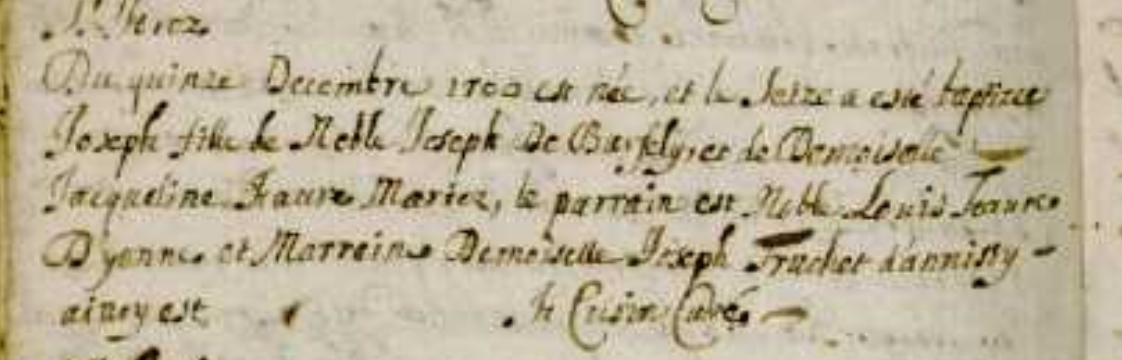 Du quinze Decembre 1700 est née, et le seize a esté baptizee
Joseph fille de Noble Joseph De Barfely, et de Demoiselle
Jacqueline Faure Mariez, le parrain est Noble Louis
Dyonne et Marraine Demoiselle Joseph Fruchet dannissy
ainsy est Curé